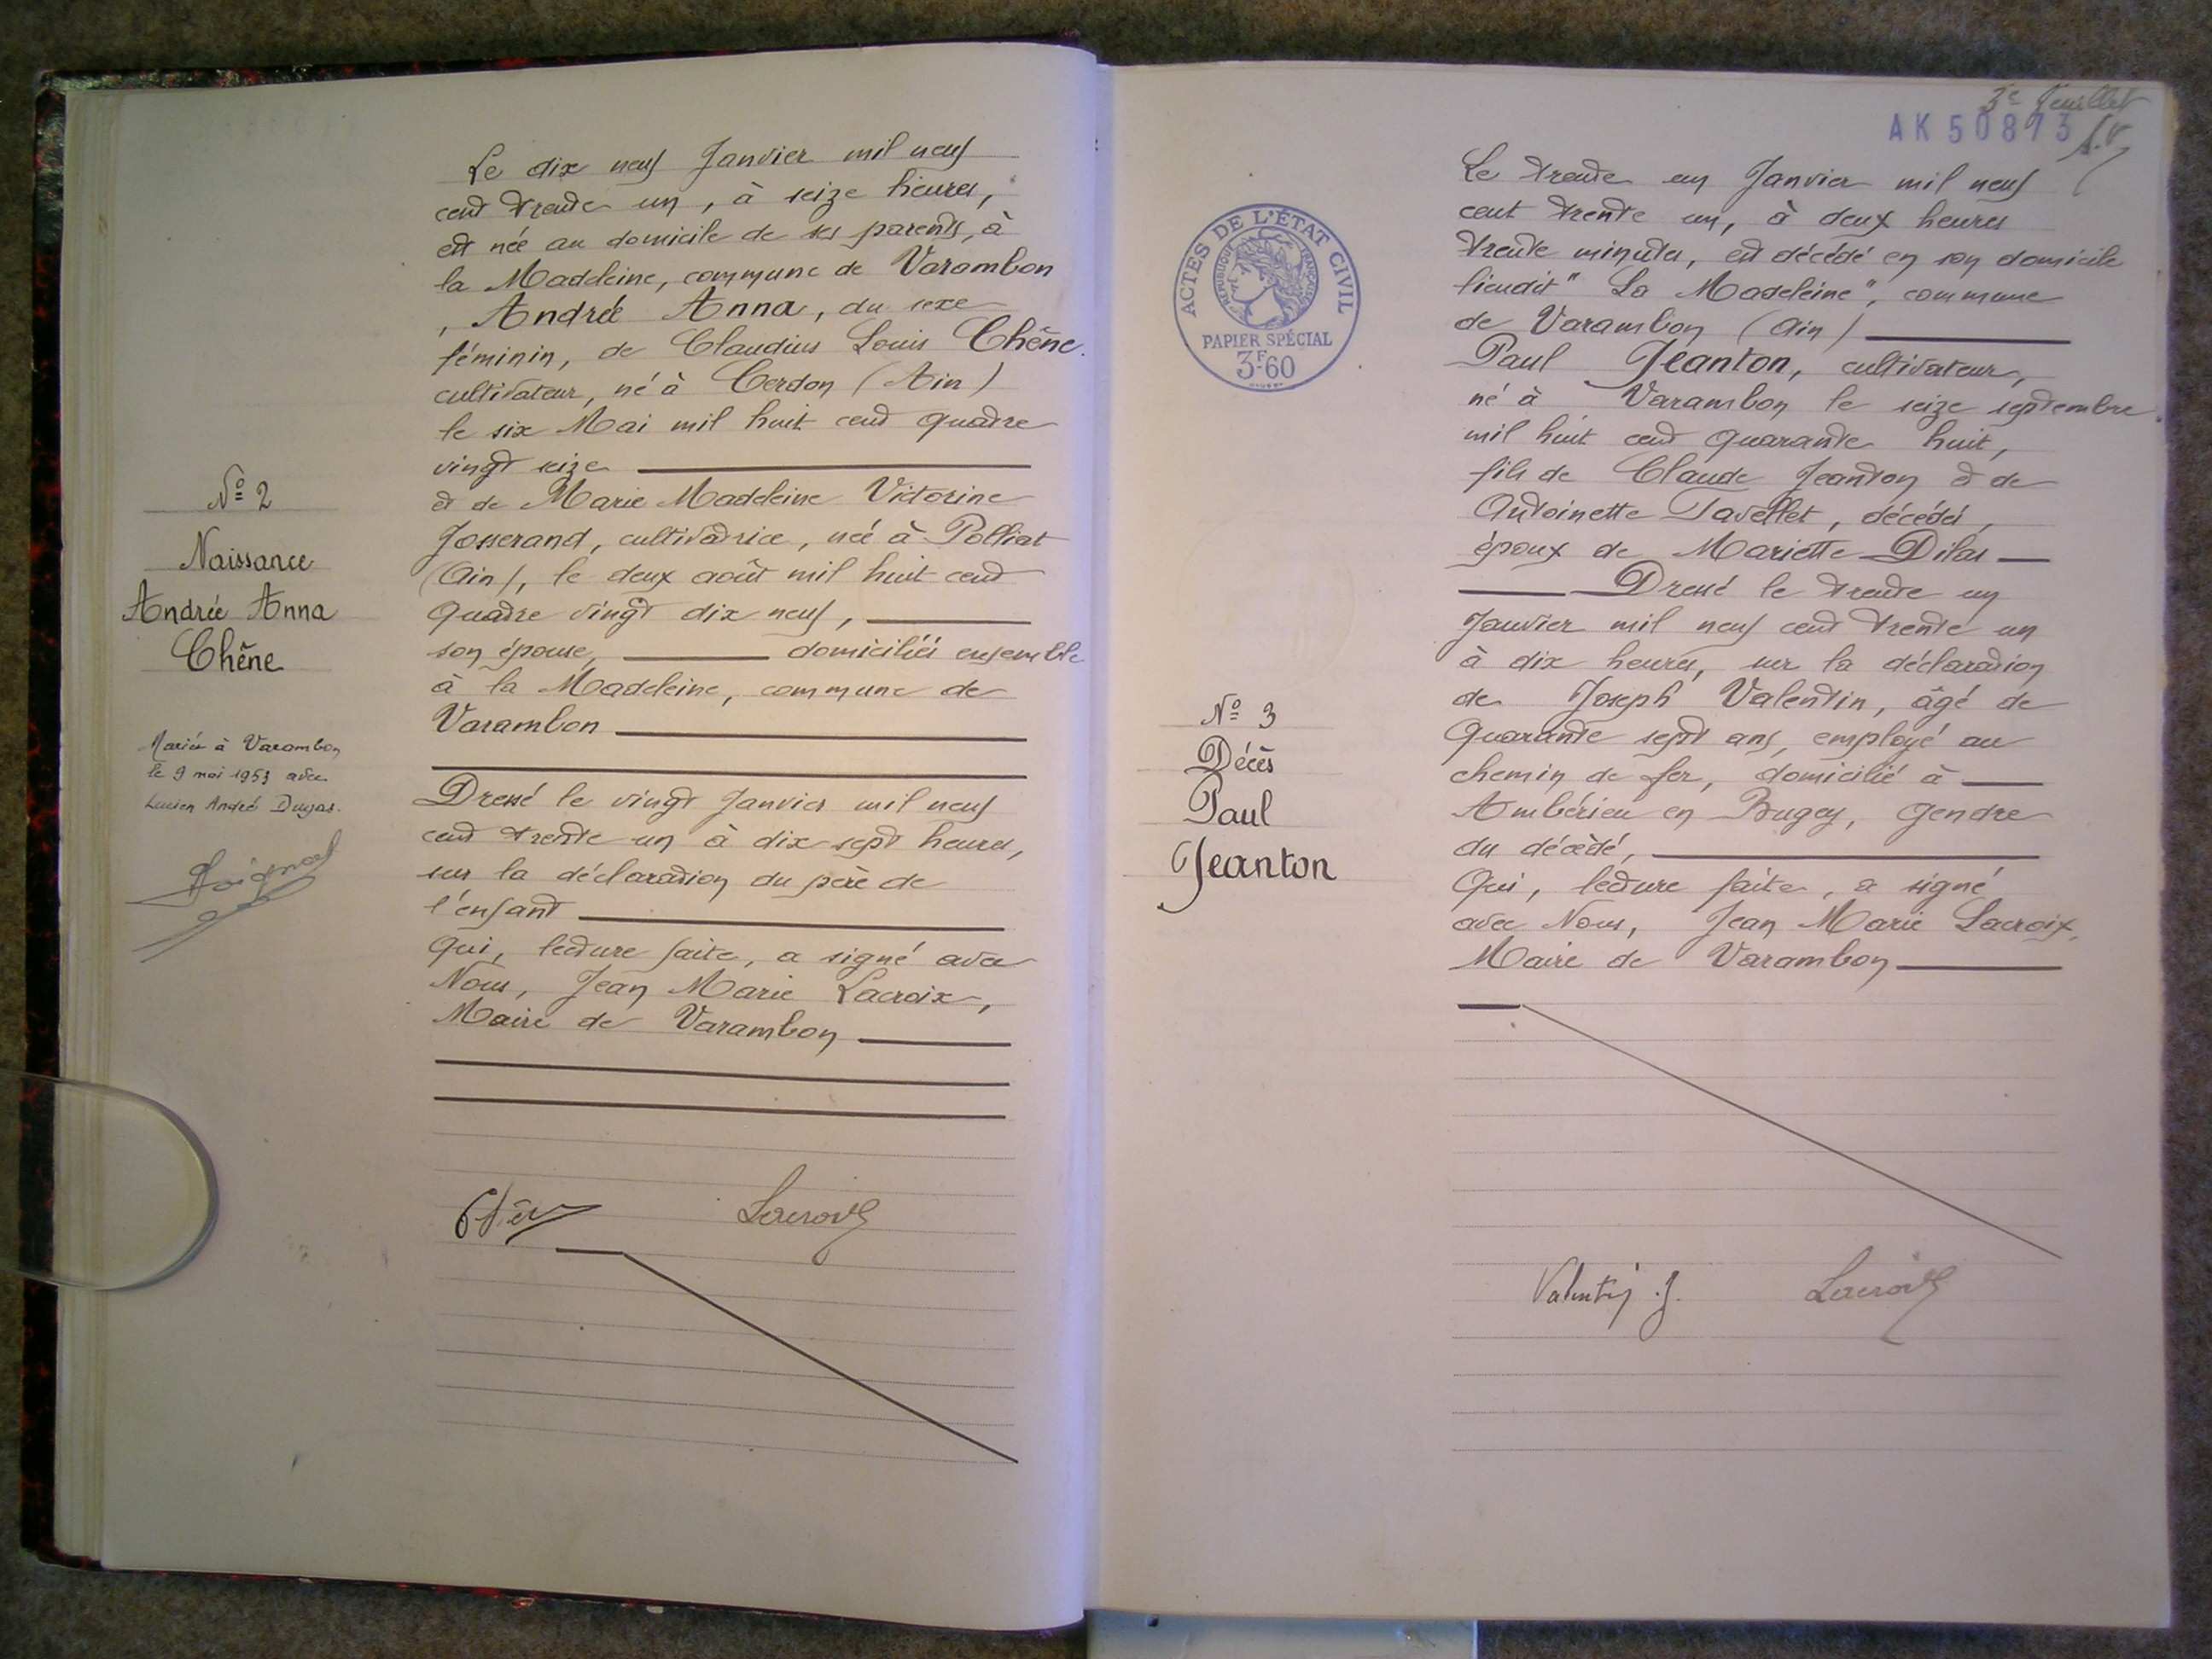 Le dix neuf Janvier mil neuf
cent trente un, à seize heures,
est née au domicile de ses parents, à
la Madeleine, commune de Varambon
, Andrée Anna, du sexe
féminin, de Claudius Louis Chêne.
cultivateur, né à Cerdon (Ain)
le six Mai mil huit cent quatre
vingt seize
et de Marie Madeleine Victorine
Josserand, cultivatrice, née à Polliat
(Ain), le deux août mil huit cent
quatre vingt dix neuf,
son épouse, domiciliés ensemble
à la Madeleine, commune de
Varambon
Dressé le vingt Janvier mil neuf
cent trente un à dix-sept heures,
sur la déclaration du père de
l'enfant
Qui, lecture faite, a signé avec
Nous, Jean Marie Lacroix,
Maire de Varambon
Chêne Lacroix
Nº 2
Naissance
Andrée Anna
Chêne
Mariée à Varambon
le 9 mai 1953 avec
Lucien André Dugas.
3e feuillet
AK 50873
ACTES DE L'ÉTAT CIVIL
RÉPUBLIQUE FRANÇAISE
PAPIER SPÉCIAL
3F60
Le trente un Janvier mil neuf
cent trente un, à deux heures
trente minutes, est décédé en son domicile
lieudit "La Madeleine", commune
de Varambon (Ain)
Paul Jeanton, cultivateur,
né à Varambon le seize septembre
mil huit cent quarante huit,
fils de Claude Jeanton et de
Antoinette Tavellet, décédés,
époux de Mariette Dilas
Dressé le trente un
Janvier mil neuf cent trente un
à dix heures, sur la déclaration
de Joseph Valentin, âgé de
quarante sept ans, employé au
chemin de fer, domicilié à
Ambérieu en Bugey, gendre
du décédé,
Qui, lecture faite, a signé
avec Nous, Jean Marie Lacroix,
Maire de Varambon
Valentin J. Lacroix
Nº 3
Décès
Paul
Jeanton